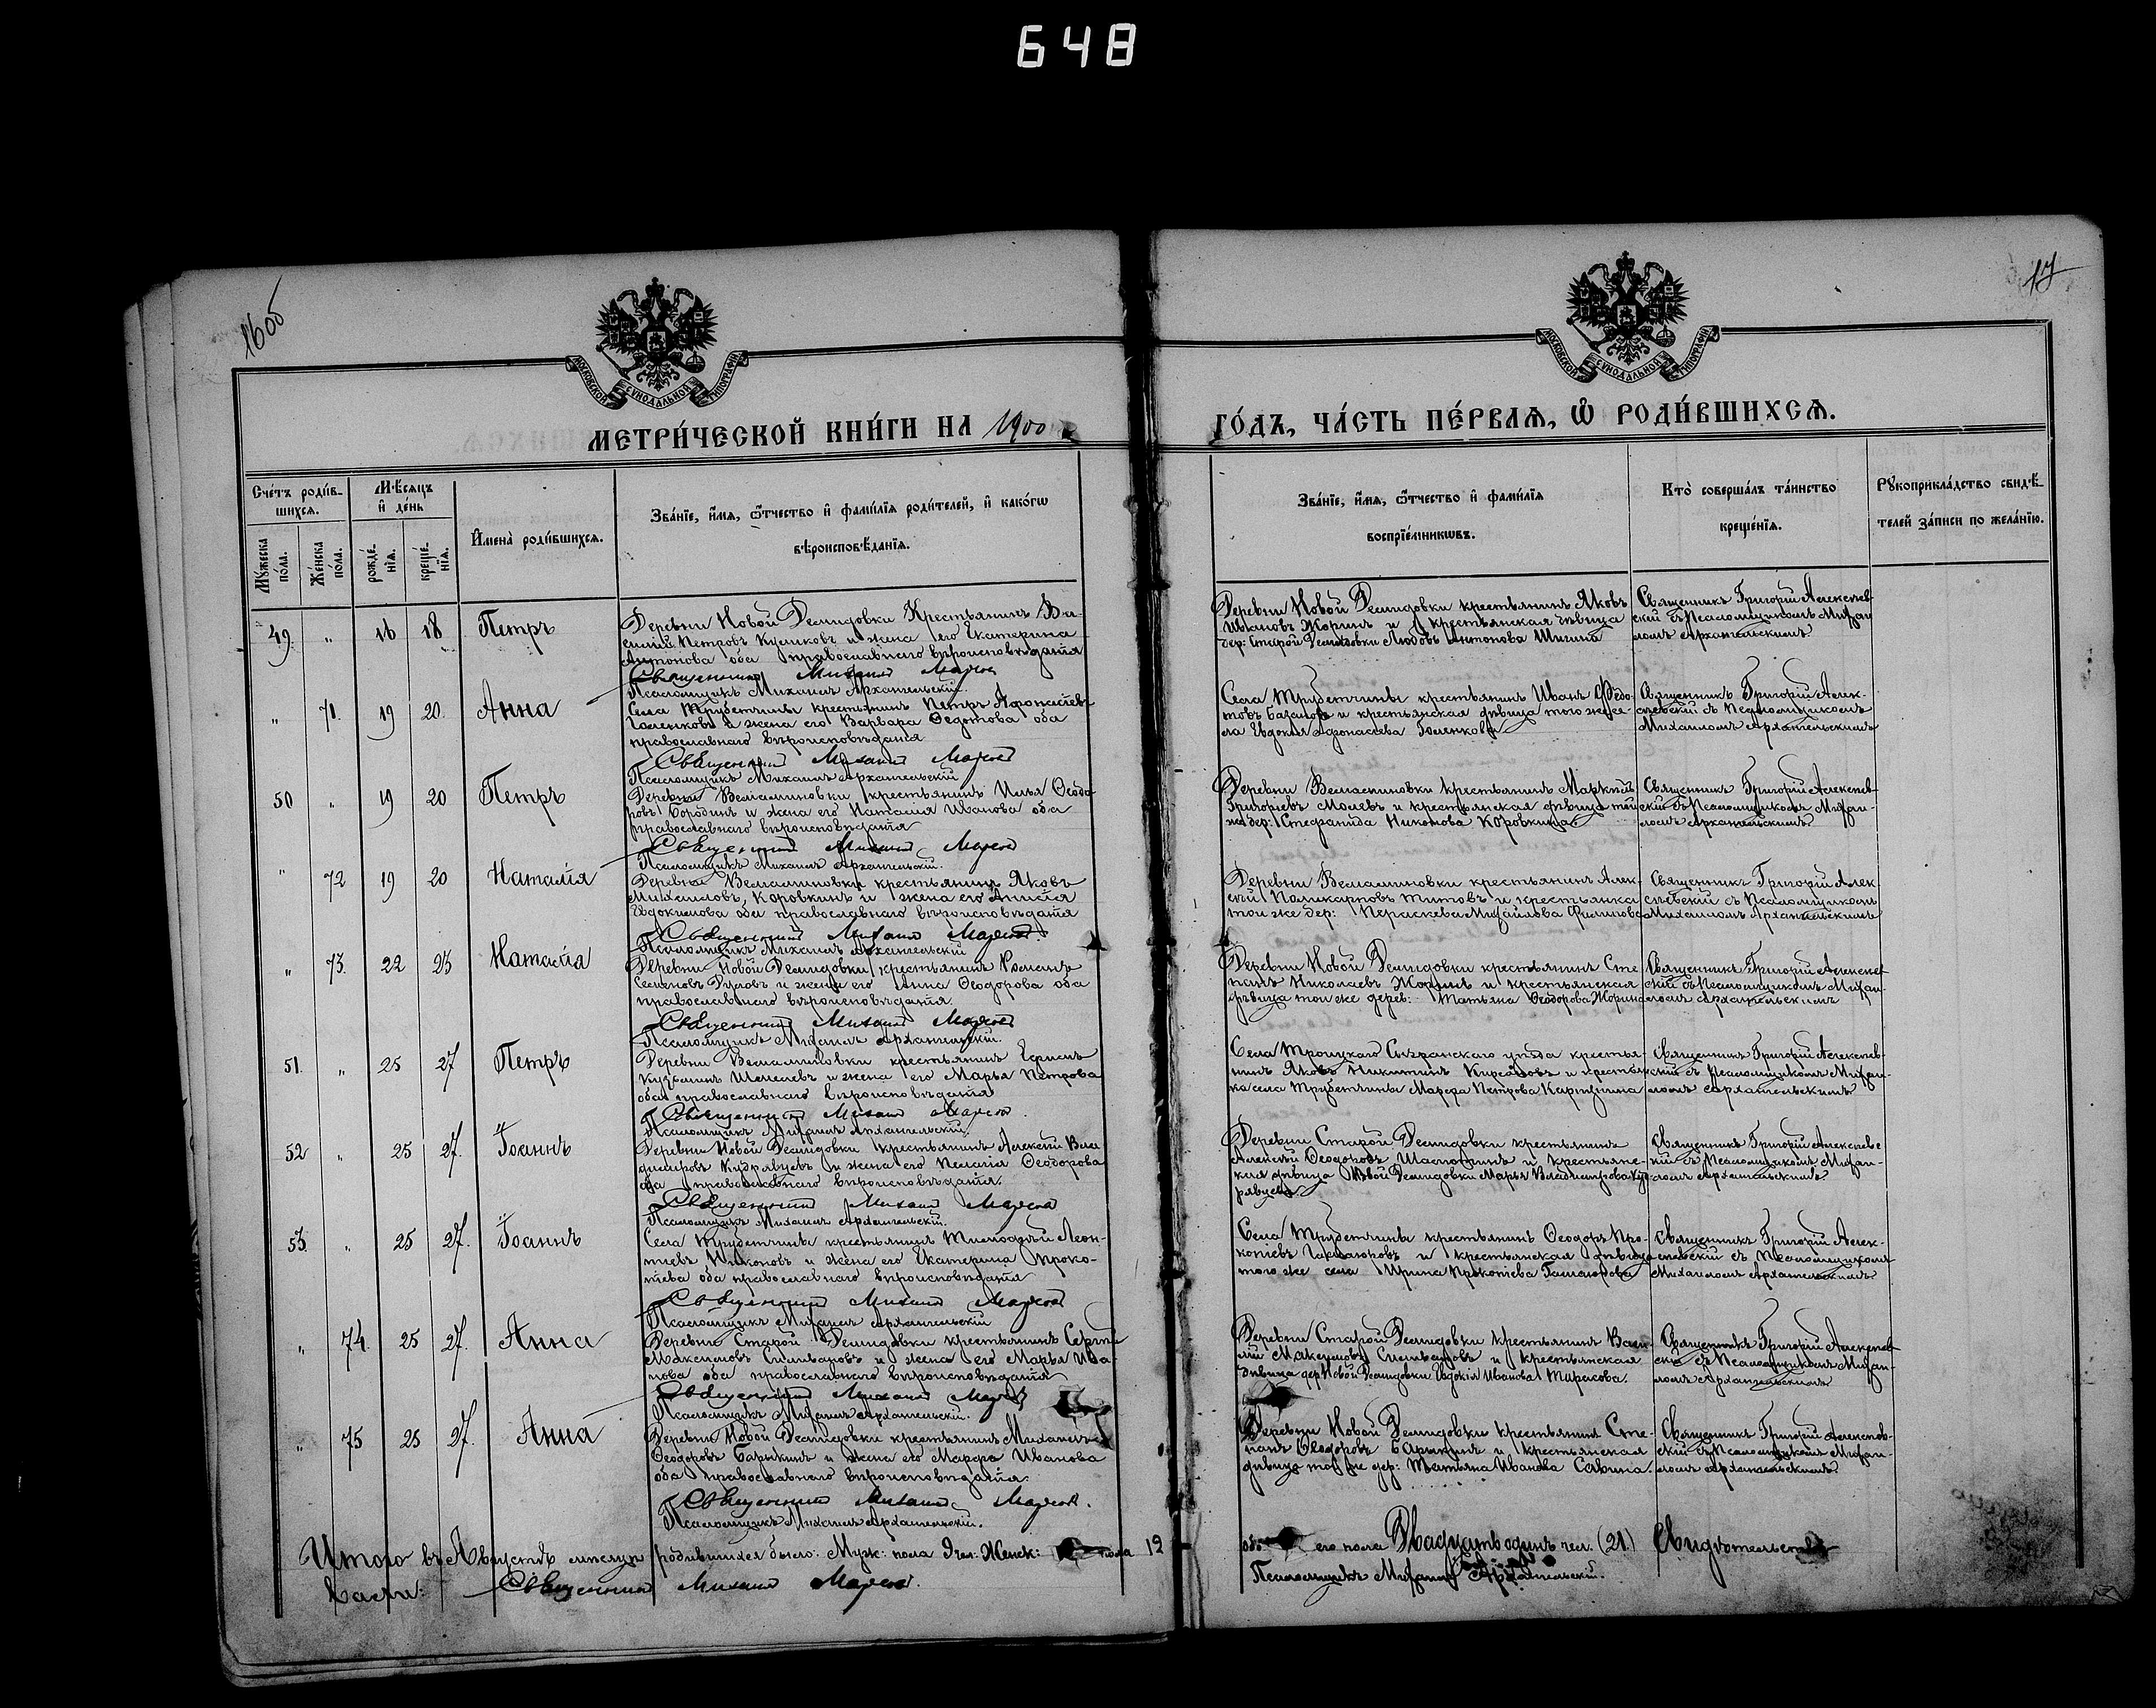 648
16об
17
МОСКОВСКОЙ СѴНОДАЛЬНОЙ ТИПОГРАФІИ
МОСКОВСКОЙ СѴНОДАЛЬНОЙ ТИПОГРАФІИ
МЕТРИ́ЧЕСКОЙ КНИ́ГИ НА 1900
ГО́ДЪ, ЧА́СТЬ ПЕ́РВАѦ, Ѡ РОДИ́ВШИХСѦ.
Сче́тъ роди́в-
шихсѧ.
Мѣ́сѧцъ
и҆ де́нь
Мꙋ́жеска
по́ла.
Же́нска
по́ла.
рожде́-
нїѧ.
креще́-
нїѧ.
И҆мена̀ роди́вшихсѧ.
Зва́нїе, и҆́мѧ, ѻ҆́тчество и҆ фами́лїѧ роди́телей, и҆ како́гѡ
вѣроисповѣ́данїѧ.
Зва́нїе, и҆́мѧ, ѻ҆́тчество и҆ фами́лїѧ
воспрїе́мникѡвъ.
Кто̀ соверша́лъ та́инство
креще́нїѧ.
Рꙋкоприкла́дство свидѣ́-
телей за́писи по жела́нїю.
49. " 16 18 Петръ
Деревни Новой Демидовки Крестьянинъ Ва-
силій Петровъ Куликовъ и жена его Екатерина
Антонова оба православнаго вѣроисповѣданія
Священникъ Михаилъ
Псаломщикъ Михаилъ Архангельскій.
Деревни Новой Демидовки крестьянинъ Яковъ
Ивановъ Жоринъ и крестьянская дѣвица
дер: Старой Демидовки Любовь Антонова Шишина
Священникъ Григорій Алексѣев-
скій съ Псаломщикомъ Михаи-
ломъ Архангельскимъ
" 71. 19 20. Анна
Села Трубетчины крестьянинъ Петръ Афонасіевъ
Голенковъ и жена его Варвара Ѳедотова оба
православнаго вѣроисповѣданія
Священникъ Михаилъ
Псаломщикъ Михаилъ Архангельскій
Села Трубетчины крестьянинъ Иванъ Ѳедо-
товъ и крестьянская дѣвица того же се-
ла Евдокія Афонасіева Голенкова
Священникъ Григорій Алек-
сѣевскій съ Псаломщикомъ
Михаиломъ Архангельскимъ
50 " 19 20 Петръ
Деревни Вельяминовки крестьянинъ Илья Ѳеодо-
ровъ Бородинъ и жена его Наталія Иванова оба
православнаго вѣроисповѣданія
Священникъ Михаилъ
Псаломщикъ Михаилъ Архангельскій.
Деревни Вельяминовки крестьянинъ
Григоріевъ и крестьянская дѣвица той
же дер: Стефанида Никонова Коровкина.
Священникъ Григорій Алексѣев-
скій съ Псаломщикомъ Михаи-
ломъ Архангельскимъ
" 72 19 20 Наталія
Деревни Вельяминовки крестьянинъ Яковъ
Михайловъ Коровкинъ и жена его Анисія
Евдокимова оба православнаго вѣроисповѣданія
Священникъ Михаилъ
Псаломщикъ Михаилъ Архангельскій
Деревни Вельяминовки крестьянинъ Алек-
сѣй Поликарповъ Титовъ и крестьянка
той же дер: Параскева Михайлова Филипова
Священникъ Григорій Алек-
сѣевскій съ Псаломщикомъ
Михаиломъ Архангельскимъ
" 73. 22 23 Наталія
Деревни Новой Демидовки крестьянинъ Романъ
Семеновъ и жена его Анна Ѳеодорова оба
православнаго вѣроисповѣданія.
Священникъ Михаилъ
Псаломщикъ Михаилъ Архангельскій.
Деревни Новой Демидовки крестьянинъ Сте-
панъ Николаевъ Жоринъ и крестьянская
дѣвица той же дерев: Татьяна Ѳеодорова Жорина
Священникъ Григорій Алексѣев-
скій съ Псаломщикомъ Михаи-
ломъ Архангельскимъ
51. " 25 27 Петръ
Деревни Вельяминовки крестьянинъ
Кузьминъ и жена его Марья Петрова
оба православнаго вѣроисповѣданія
Священникъ Михаилъ
Псаломщикъ Михаилъ Архангельскій.
Села Троицкаго Сызранскаго уѣзда крестья-
нинъ Яковъ Никитинъ и крестьян-
ка села Трубетчины Марфа Петрова
Священникъ Григорій Алексѣев-
скій съ Псаломщикомъ Михаи-
ломъ Архангельскимъ
52 " 25 27. Іоаннъ
Деревни Новой Демидовки крестьянинъ Алексѣй Вла-
диміровъ Кудрявцевъ и жена его Пелагія Ѳеодорова
оба православнаго вѣроисповѣданія.
Священникъ Михаилъ
Псаломщикъ Михаилъ Архангельскій.
Деревни Старой Демидовки крестьянинъ
Алексѣй Ѳеодоровъ и крестьянс-
кая дѣвица Новой Демидовки Марья Владимірова Куд-
рявцева
Священникъ Григорій Алексѣевс-
кій съ Псаломщикомъ Михаи-
ломъ Архангельскимъ
53. " 25 27. Іоаннъ
Села Трубетчины крестьянинъ Тимофей Леон-
тіевъ Никоновъ и жена его Екатерина Проко-
піева оба православнаго вѣроисповѣданія
Священникъ Михаилъ
Псаломщикъ Михаилъ Архангельскій
Села Трубетчины крестьянинъ Ѳеодоръ Про-
копіевъ и крестьянская дѣвица
того же села Ирина Прокопіева
Священникъ Григорій Алек-
сѣевскій съ Псаломщикомъ
Михаиломъ Архангельскимъ
" 74. 25 27. Анна
Деревни Старой Демидовки крестьянинъ Сергѣй
Максимовъ Силивановъ и жена его Марья Ива-
нова оба православнаго вѣроисповѣданія
Священникъ Михаилъ
Псаломщикъ Михаилъ Архангельскій.
Деревни Старой Демидовки крестьянинъ Васи-
лій Максимовъ Силивановъ и крестьянская
дѣвица дер Новой Демидовки Евдокія Иванова Тарасова.
Священникъ Григорій Алексѣев-
скій съ Псаломщикомъ Михаи-
ломъ Архангельскимъ
" 75 25 27. Анна
Деревни Новой Демидовки крестьянинъ Михаилъ
Ѳеодоровъ Барыкинъ и жена его Марфа Иванова
оба православнаго вѣроисповѣданія.
Священникъ Михаилъ
Псаломщикъ Михаилъ Архангельскій.
Деревни Новой Демидовки крестьянинъ Сте-
панъ Ѳеодоровъ Барыкинъ и крестьянская
дѣвица той же дер: Татьяна Иванова Савина.
Священникъ Григорій Алексѣев-
скій съ Псаломщикомъ Михаи-
ломъ Архангельскимъ
Итого въ Августѣ мѣсяцѣ родившихся было: Муж: пола 9 чел: Женск: пола 12
обо его пола Двадцать одинъ чел. (21.)
Священникъ Михаилъ
Псаломщикъ Михаилъ Архангельскій.